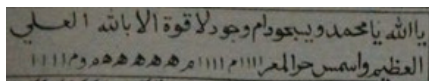 يا الله يا محمد و يبعودام وجود لا قوة الا بالله العلي
العظيم واسمس حرالمعر ١١١١ م ١١١١ م ه ه ه ه ه ه ه و م ١١١١